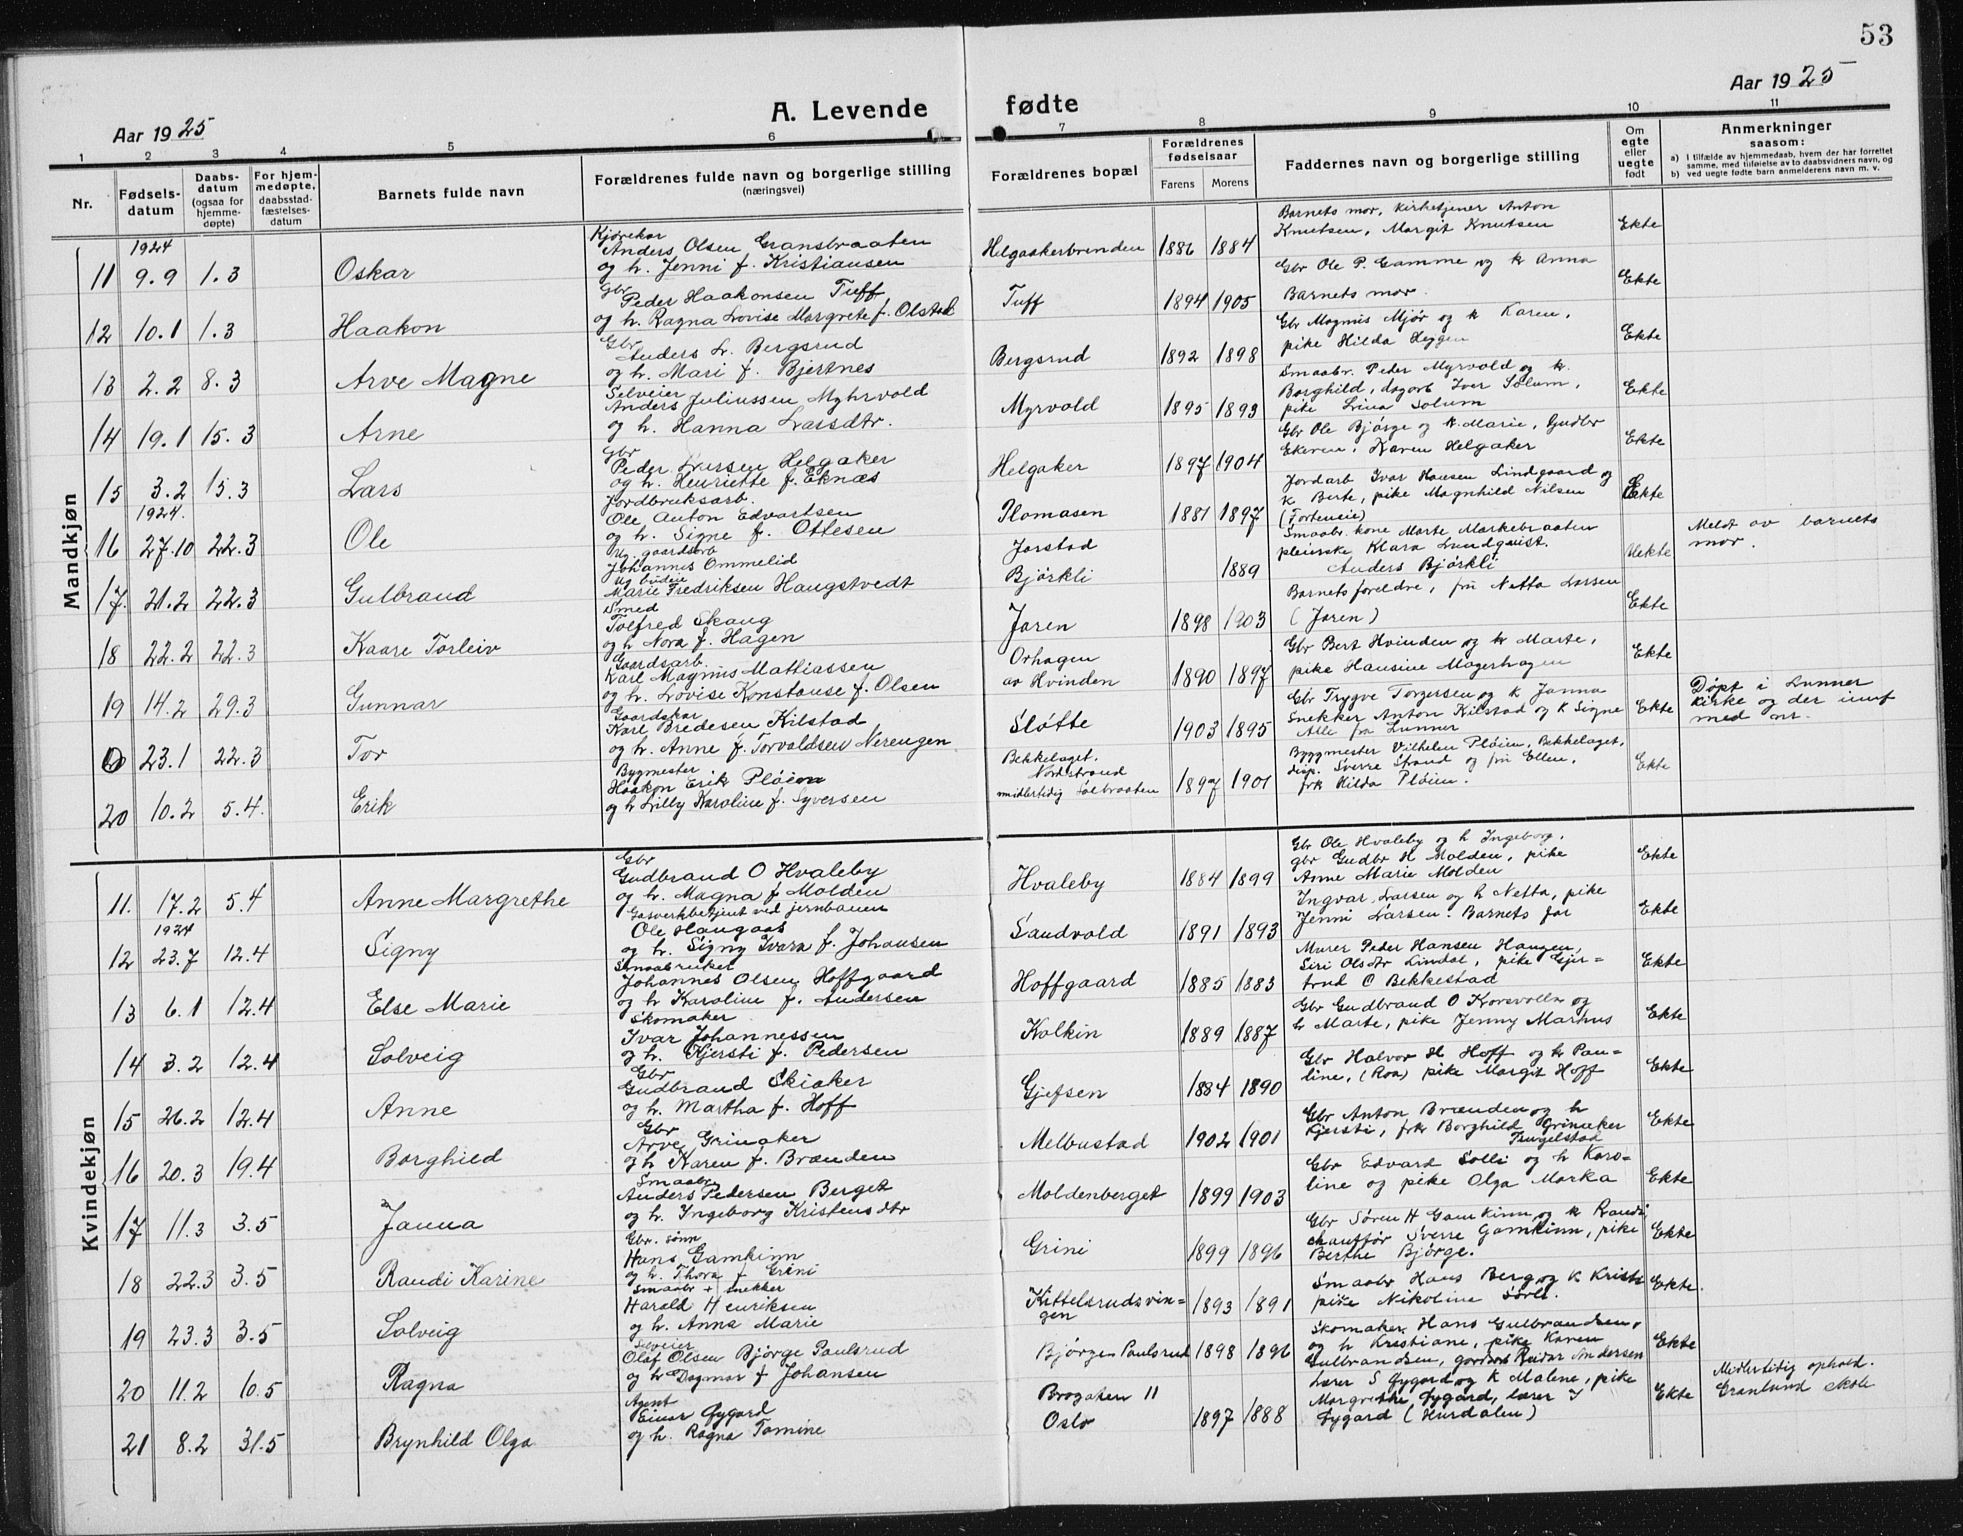 53
Aar 1925
A. Levende
fødte
Aar 1925
1 2 3 4 5 6 7 8 9 10 11
Nr.
Fødsels-
datum
Daabs-
datum
(ogsaa for
hjemme-
døpte)
For hjem-
medøpte,
daabsstad-
fæstelses-
datum
Barnets fulde navn
Forældrenes fulde navn og borgerlige stilling
(næringsvei)
Forældrenes bopæl
Forældrenes
fødselsaar
Farens Morens
Faddernes navn og borgerlige stilling
Om
egte
eller
uegte
født
Anmerkninger
saasom:
a) I tilfælde av hjemmedaab, hvem der har forrettet
samme, med tilføielse av to daabsvidners navn, og
b) ved uegte fødte barn anmelderens navn m. v.
Mandkjøn
1924
11 9.9 1.3 Oskar
Kjørekar
Anders Olsen Gransbraaten
og h. Jenni f. Kristiansen
Helgaakerbrenden 1886 1884
Barnets mor, kirketjener Anton
Knutsen, Margit Knutsen
Ekte
12 10.1 1.3 Haakon
Gbr
Peder Haakonsen Tuff
og h. Ragna Lovise Margrete f. Olstad
Tuff 1894 1905
Gbr Ole P. Gamme og k Anna
Barnets mor.
Ekte
13 2.2 8.3 Arve Magne
Gbr
Anders L. Bergsrud
og h. Mari f. Bjertnes
Bergsrud 1892 1898
Gbr Magnus Mjør og k Karen,
pike Hilda
Ekte
14 19.1 15.3 Arne
Selveier
Anders Juliussen Myhrvold
og h. Hanna Larsdtr.
Myrvold 1895 1893
Smaabr. Peder Myrvold og k.
Borghild, dagarb Iver Solum,
pike Lina Solum
Ekte
15 3.2 15.3 Lars
Gbr
Peder Larsen Helgaker
og h. Henriette f. Eknæs
Helgaker 1897 1904
Gbr Ole Bjørge og k. Marie, Gudbr
Ekeren, Karen Helgaker
Ekte
1924.
16 27.10 22.3 Ole
Jordbruksarb.
Ole Anton Edvartsen
og h. Signe f. Ottesen
Plomasen
Jorstad
1881 1897
Jordarb Ivar Hansen Lindgaard og
k Berte, pike Magnhild Nilsen
(Torteneie)
Ekte
17. 21.2 22.3 Gulbrand
Ug. gaardsarb
Johannes Ommelid
Ug budeie
Marie Fredriksen Haugstvedt
Bjørkli 1889
Smaabr. kone Marte Markebraaten
pleierske Klara Lundquist.
Anders Bjørkli
Uekte
Meldt av barnets
mor.
18 22.2 22.3 Kaare Torleiv
Smed
Tolfred Skaug
og h Nora f. Hagen
Jaren 1898 1903
Barnets foreldre, fru Netta Larsen
(Jaren)
Ekte
19 14.2 29.3 Gunnar
Gaardsarb.
Karl Magnus Mathiassen
og h. Lovise Konstanse f. Olsen
Orhagen
av Hvinden
1890 1897
Gbr Bert Hvinden og k Marte,
pike Hansine Magerhagen
Ekte
0 23.1 22.3 Tor
Gaardskar
Karl Bredesen Kilstad
og h. Anne f. Torvaldsen Nerengen
Sløtte 1903 1895
Gbr Trygve Torgersen og k Janna
Snekker Anton Kilstad og k Signe
Alle fra Lunner
Ekte
Døpt i Lunner
kirke og der innf
med nr.
20 10.2 5.4. Erik
Bygmester
Haakon Erik Pløien
og h Lilly Karoline f. Syversen
Bekkelaget.
Nordstrand
midlertidig Solbraaten
1897 1901
Byggmester Vilhelm Pløien, Bekkelaget,
disp. Sverre Strand og fru Ellen,
frk Hilda Pløien.
Ekte
Kvindekjøn
11. 17.2 5.4 Anne Margrethe
Gbr
Gudbrand O Hvaleby
og h. Magna f Molden
Hvaleby 1884 1899
Gbr Ole Hvaleby og h Ingeborg,
gbr Gudbr H Molden, pike
Anne Marie Molden
Ekte
1924
12 23.7 12.4 Signy
Gasverkbetjent ved jernbanen
Ole Haugaas
og h. Signy Ivara f. Johansen
Sandvold 1891 1893
Ingvar Larsen og h Netta, pike
Jenni Larsen. Barnets far
Ekte
13 6.1 12.4 Else Marie
Smaabruker
Johannes Olsen Hoffgaard
og h Karoline f. Andersen
Hoffgaard 1885 1883
Murer Peder Hansen Haugen,
Siri Olsdtr Lindal, pike Gjer=
trud O Bekkestad
Ekte
14 3.2 12.4 Solveig
Skomaker
Ivar Johannessen
og h. Kjersti f. Pedersen
Kolkin 1889 1887
Gbr Gudbrand O Korsvolln og
h Marte, pike Jenny Marhus
Ekte
15 26.2 12.4 Anne
Gbr
Gudbrand Skiaker
og h. Martha f. Hoff
Gjefsen 1884 1890
Gbr Halvor H Hoff og h Pau=
line, (Roa) pike Margit Hoff
Ekte
16 20.3 19.4 Borghild
Gbr
Arve Grinaker
og h Karen f. Brænden
Melbustad 1902 1901
Gbr Anton Brænden og h
Kjersti, frk Borghild Grinaker
Tingelstad
Ekte
17 11.3 3.5 Janna
Smaabr
Anders Pedersen Berget
og h. Ingeborg Kristensdtr
Moldenberget 1899 1903
Gbr Edvard Solli og h Karo=
line og pike Olga Marka
Ekte
18 22.3 3.5 Randi Karine
Gbr. sønn
Hans Gamkinn
og h. Thora f Grini
Grini 1899 1896
Gbr Søren H Gamkinn og k Randi
chauffør Sverre Gamkinn, pike
Berthe Bjørge.
Ekte
19 23.3 3.5 Solveig
Smaabr + snekker
Harald Henriksen
og h. Anna Marie
Kittelsrudsvin=
gen
1893 1891
Smaabr Hans Berg og k Kristi
pike Nikoline Sørli.
Ekte.
20 11.2 10.5 Ragna
Selveier
Olaf Olsen Bjørge Paulsrud
og h Dagmar f Johansen
Bjørgen Paulsrud 1898 1896
Skomaker Hans Gulbrandsen,
og h Kristiane, pike Karen
Gulbrandsen, Reidar Andersen
Ekte
21 8.2 31.5 Brynhild Olga
Agent
Einar Dygard
og h. Ragna Tomine
Brogaten 11
Oslo
1897 1888
Lærer S Dygard og k Malene, pike
Margrethe Dygard, lærer I
Dygard (Hurdalen)
Ekte
Midlertidig ophold.
Granlund skole